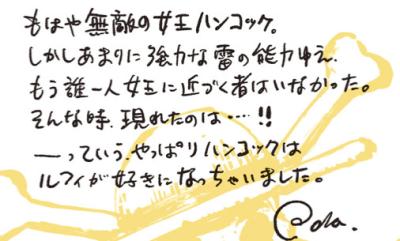 もはや無敵の女王ハンコック。
しかしあまりに強力な雷の能力ゆえ、
もう誰一人女王に近づく者はいなかった。
そんな時、現れたのは…!!
―っていう、やっぱりハンコックは
ルフィが好きになっちゃいました。
@oda.